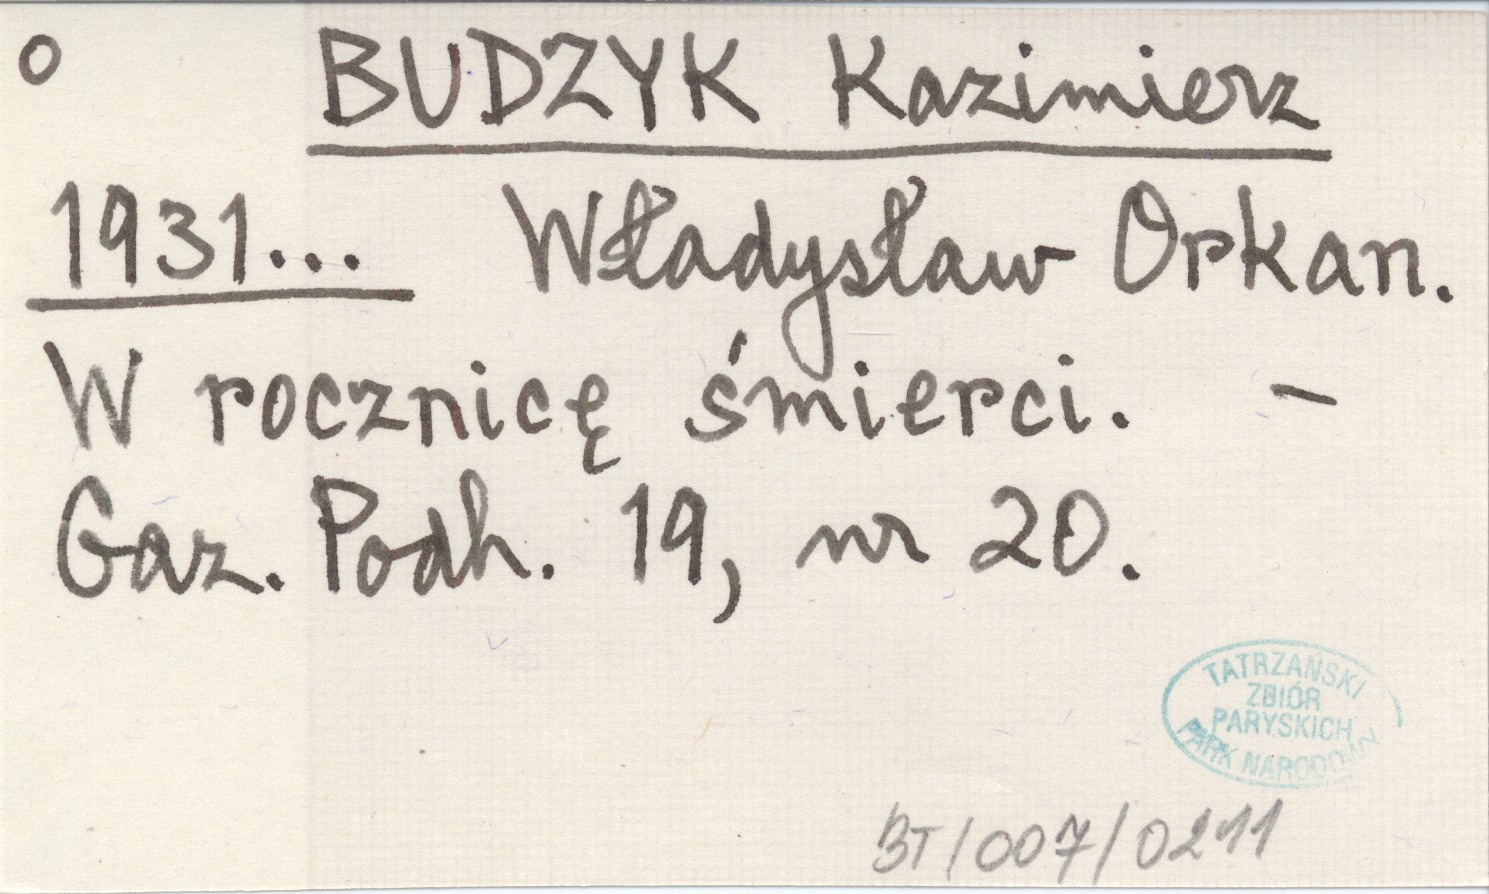 o BUDZYK Kazimierz
1931... Władysław Orkan.
W rocznicę śmierci. –
Gaz. Podh. 19, nr 20.
TATRZAŃSKI
ZBIÓR
PARYSKICH
PARK NARODOWY
BT/007/0211